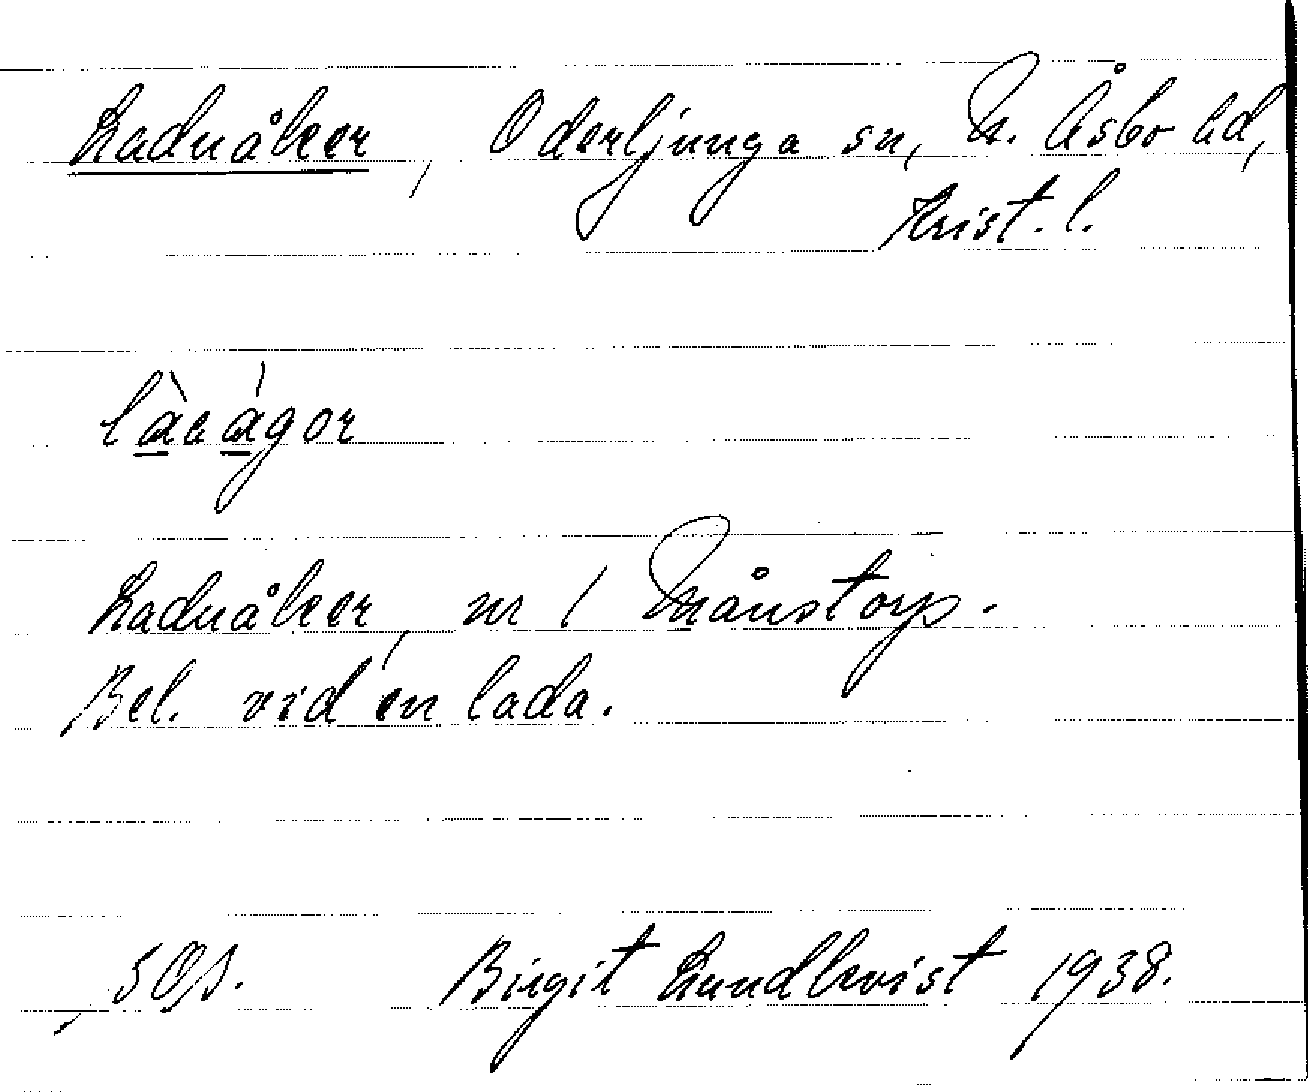 Laduåker, Oderljunga sn, N. Åsbo hd,
Krist. l.
làaágor
Laduåker, nr 1 Månstorp.
Bel. vid en lada.
Birgit Lundkvist 1938.